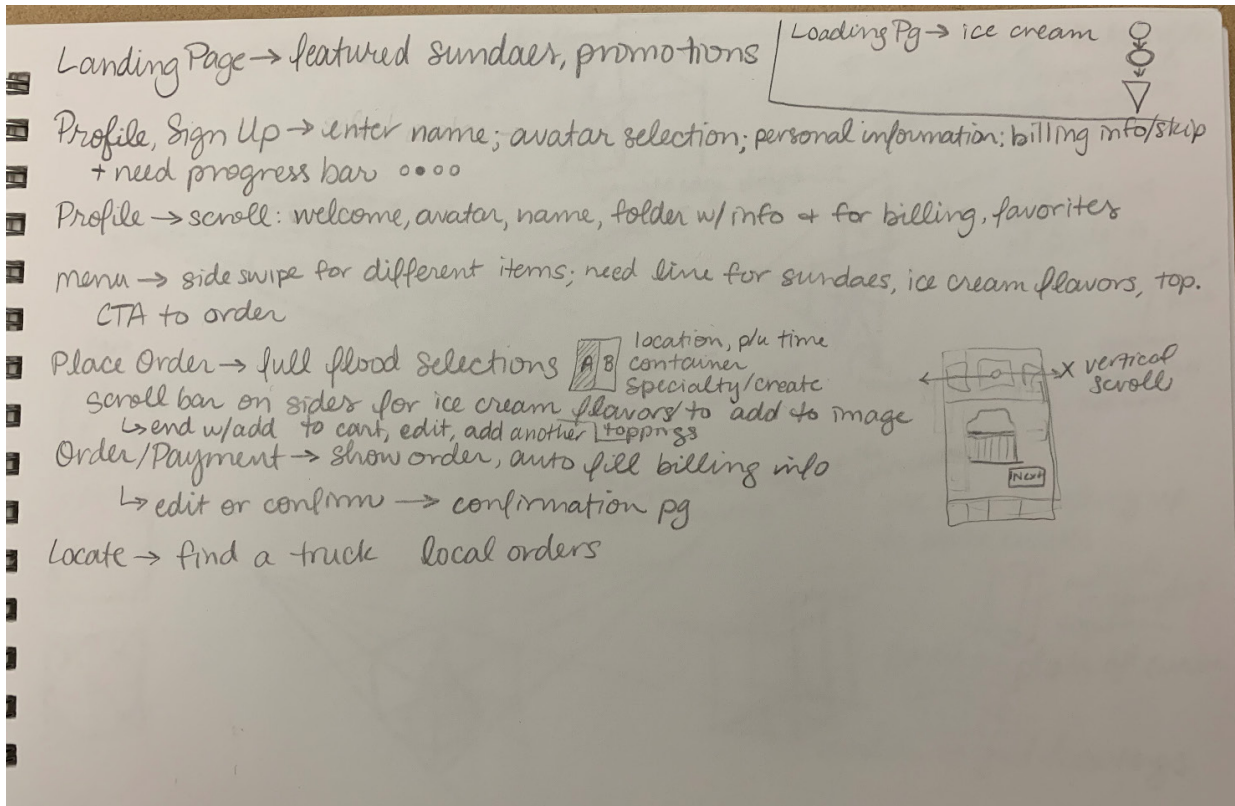 Landing Page → featured sundaes, promotions
Loading Pg → ice cream
Profile, Sign Up → enter name; avatar selection; personal information; billing info/skip
+ need progress bar
Profile → scroll: welcome, avatar, name, folder w/ info + for billing, favorites
menu → side swipe for different items; need line for sundaes, ice cream flavors, top.
CTA to order
Place Order → full flood selections
A B
location, p/u time
container
specialty/create
scroll bar on sides for ice cream flavors/to add to image
toppings
↳ end w/add to cart, edit, add another
Order/Payment → show order, auto fill billing info
↳ edit or confirm → confirmation pg
Locate → find a truck local orders
X vertical
scroll
Next